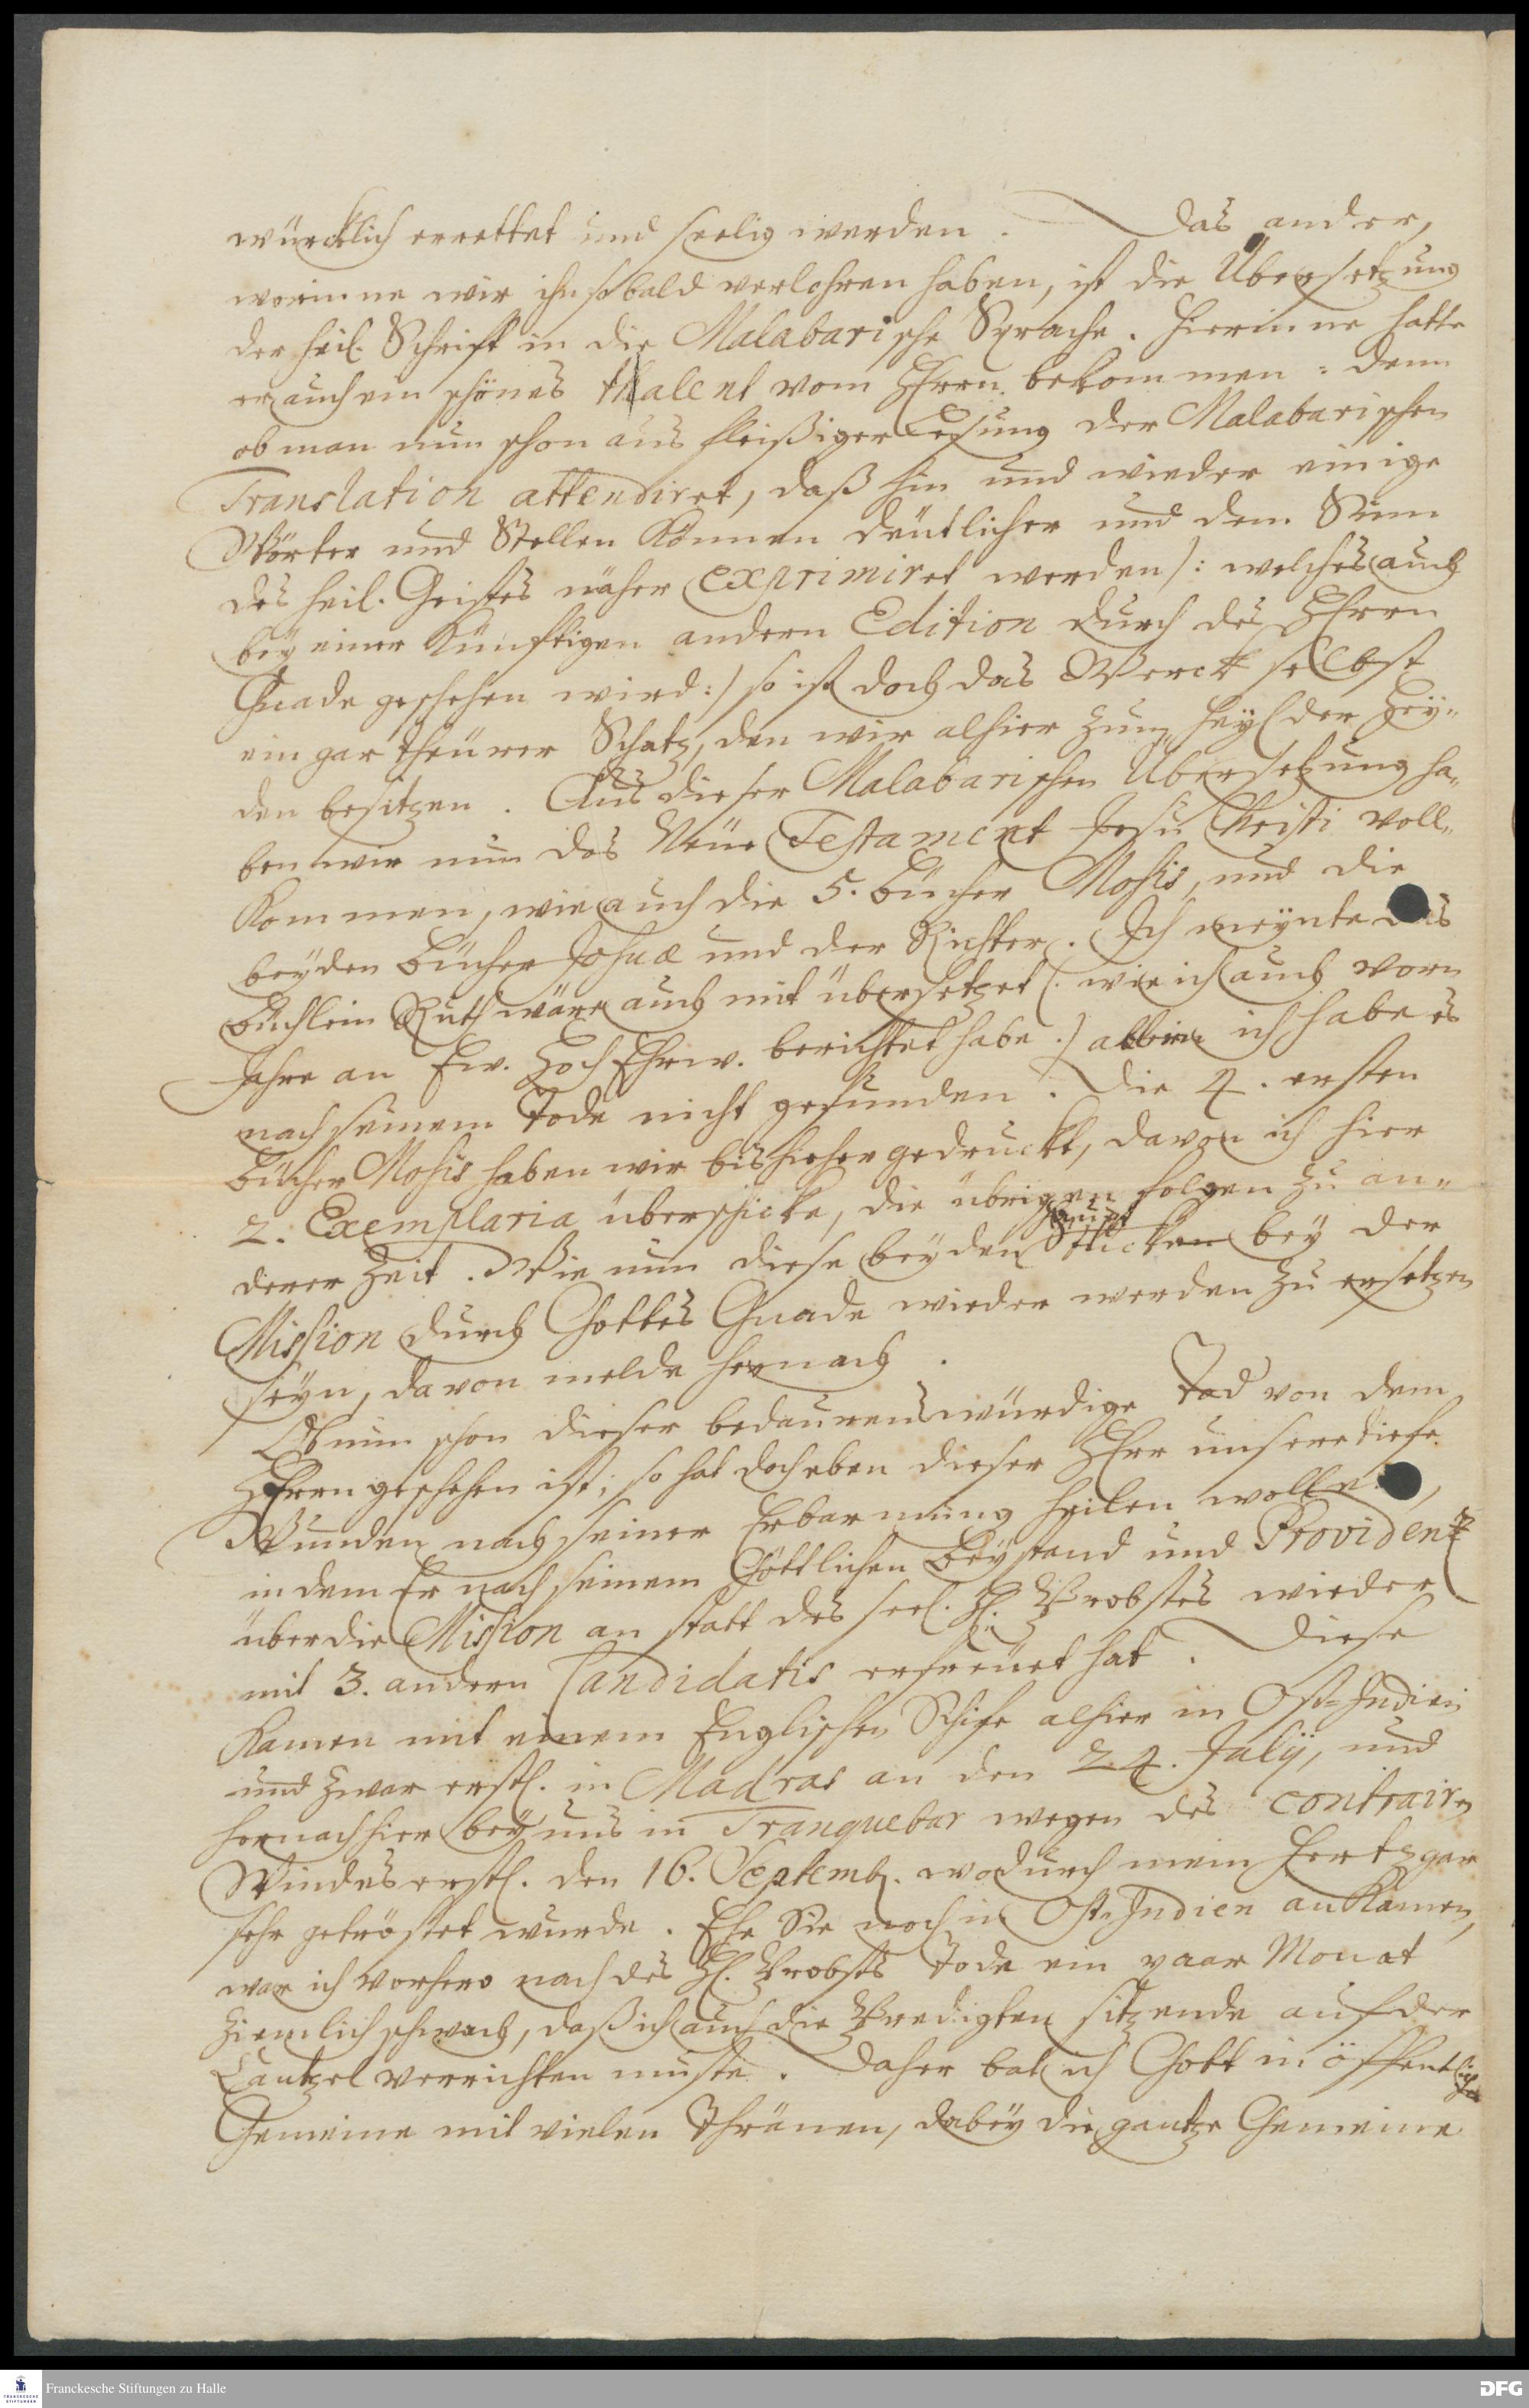 würcklich errettet und seelig werden. Das ander,
worinne wir ihn so bald verlohren haben, ist die Übersetzung
der heil. Schrifft in die Malabarische Sprache. Hierinne hatte
er auch ein schönes thalent vom HErrn bekommen: denn
ob man nun schon aus fleißiger Lesung der Malabarischen
Translation attendiret, daß hin und wieder einige
Wörter und Stellen können deutlicher und dem Sinn
des heil. Geistes näher exprimiret werden /: welches auch
bey einer künfftigen andern Edition durch des HErrn
Gnade geschehen wird :/ so ist doch das Werck selbst
ein gar theürer Schatz, den wir alhier zum Heyl der Hey-
den besitzen. Aus dieser Malabarischen Übersetzung ha-
ben wir nun das Neue Testament Jesu Christi voll-
kommen, wie auch die 5. Bücher Mosis, und die
beyden Bücher Josuae und der Richter. Ich meynte das
Büchlein Ruth wäre auch mit übersetzet (. wie ich auch vorm
Jahre an Ew. HochEhrw. berichtet habe .) allein ich habe es
nach seinem Tode nicht gefunden. Die 4. ersten
Bücher Mosis haben wir bishieher gedruckt, davon ich hier
2. Exemplaria überschicke, die übrigen folgen zu an-
derer Zeit. Wie nun diese beyden Stücken bey der
Mission durch Gottes Gnade wieder werden zu ersetzen
seyn, davon melde hernach.
Ob nun schon dieser bedaurenswürdige Tod von dem
HErrn geschehen ist; so hat doch eben dieser HErr unsere tiefe
Wunden nach seiner Erbarmung heilen wollen,
in dem Er nach seinem Göttlichen Beystand und Providentz
über die Mission an statt des seel. H. Probstes wieder
mit 3. andern Candidatis erfreuet hat. Diese
kamen mit einem Englischen Schiffe alhier in Ost-Indien
und zwar erstl. in Madras an den 24. Julij, und
hernach hier bey uns in Tranquebar wegen des contrairen
Windes erstl. den 16. Septemb. wodurch mein Hertz gar
sehr getröstet wurde. Ehe Sie noch in Ost-Indien ankamen,
war ich vorhero nach des H. Probsts Tode ein paar Monat
ziemlich schwach, daß ich auch die Predigten sitzende auf der
Cantzel verrichten muste. Daher bat ich Gott in öffentlicher
Gemeine mit vielen Thränen, dabey die gantze Gemeine
Franckesche Stiftungen zu Halle
DFG